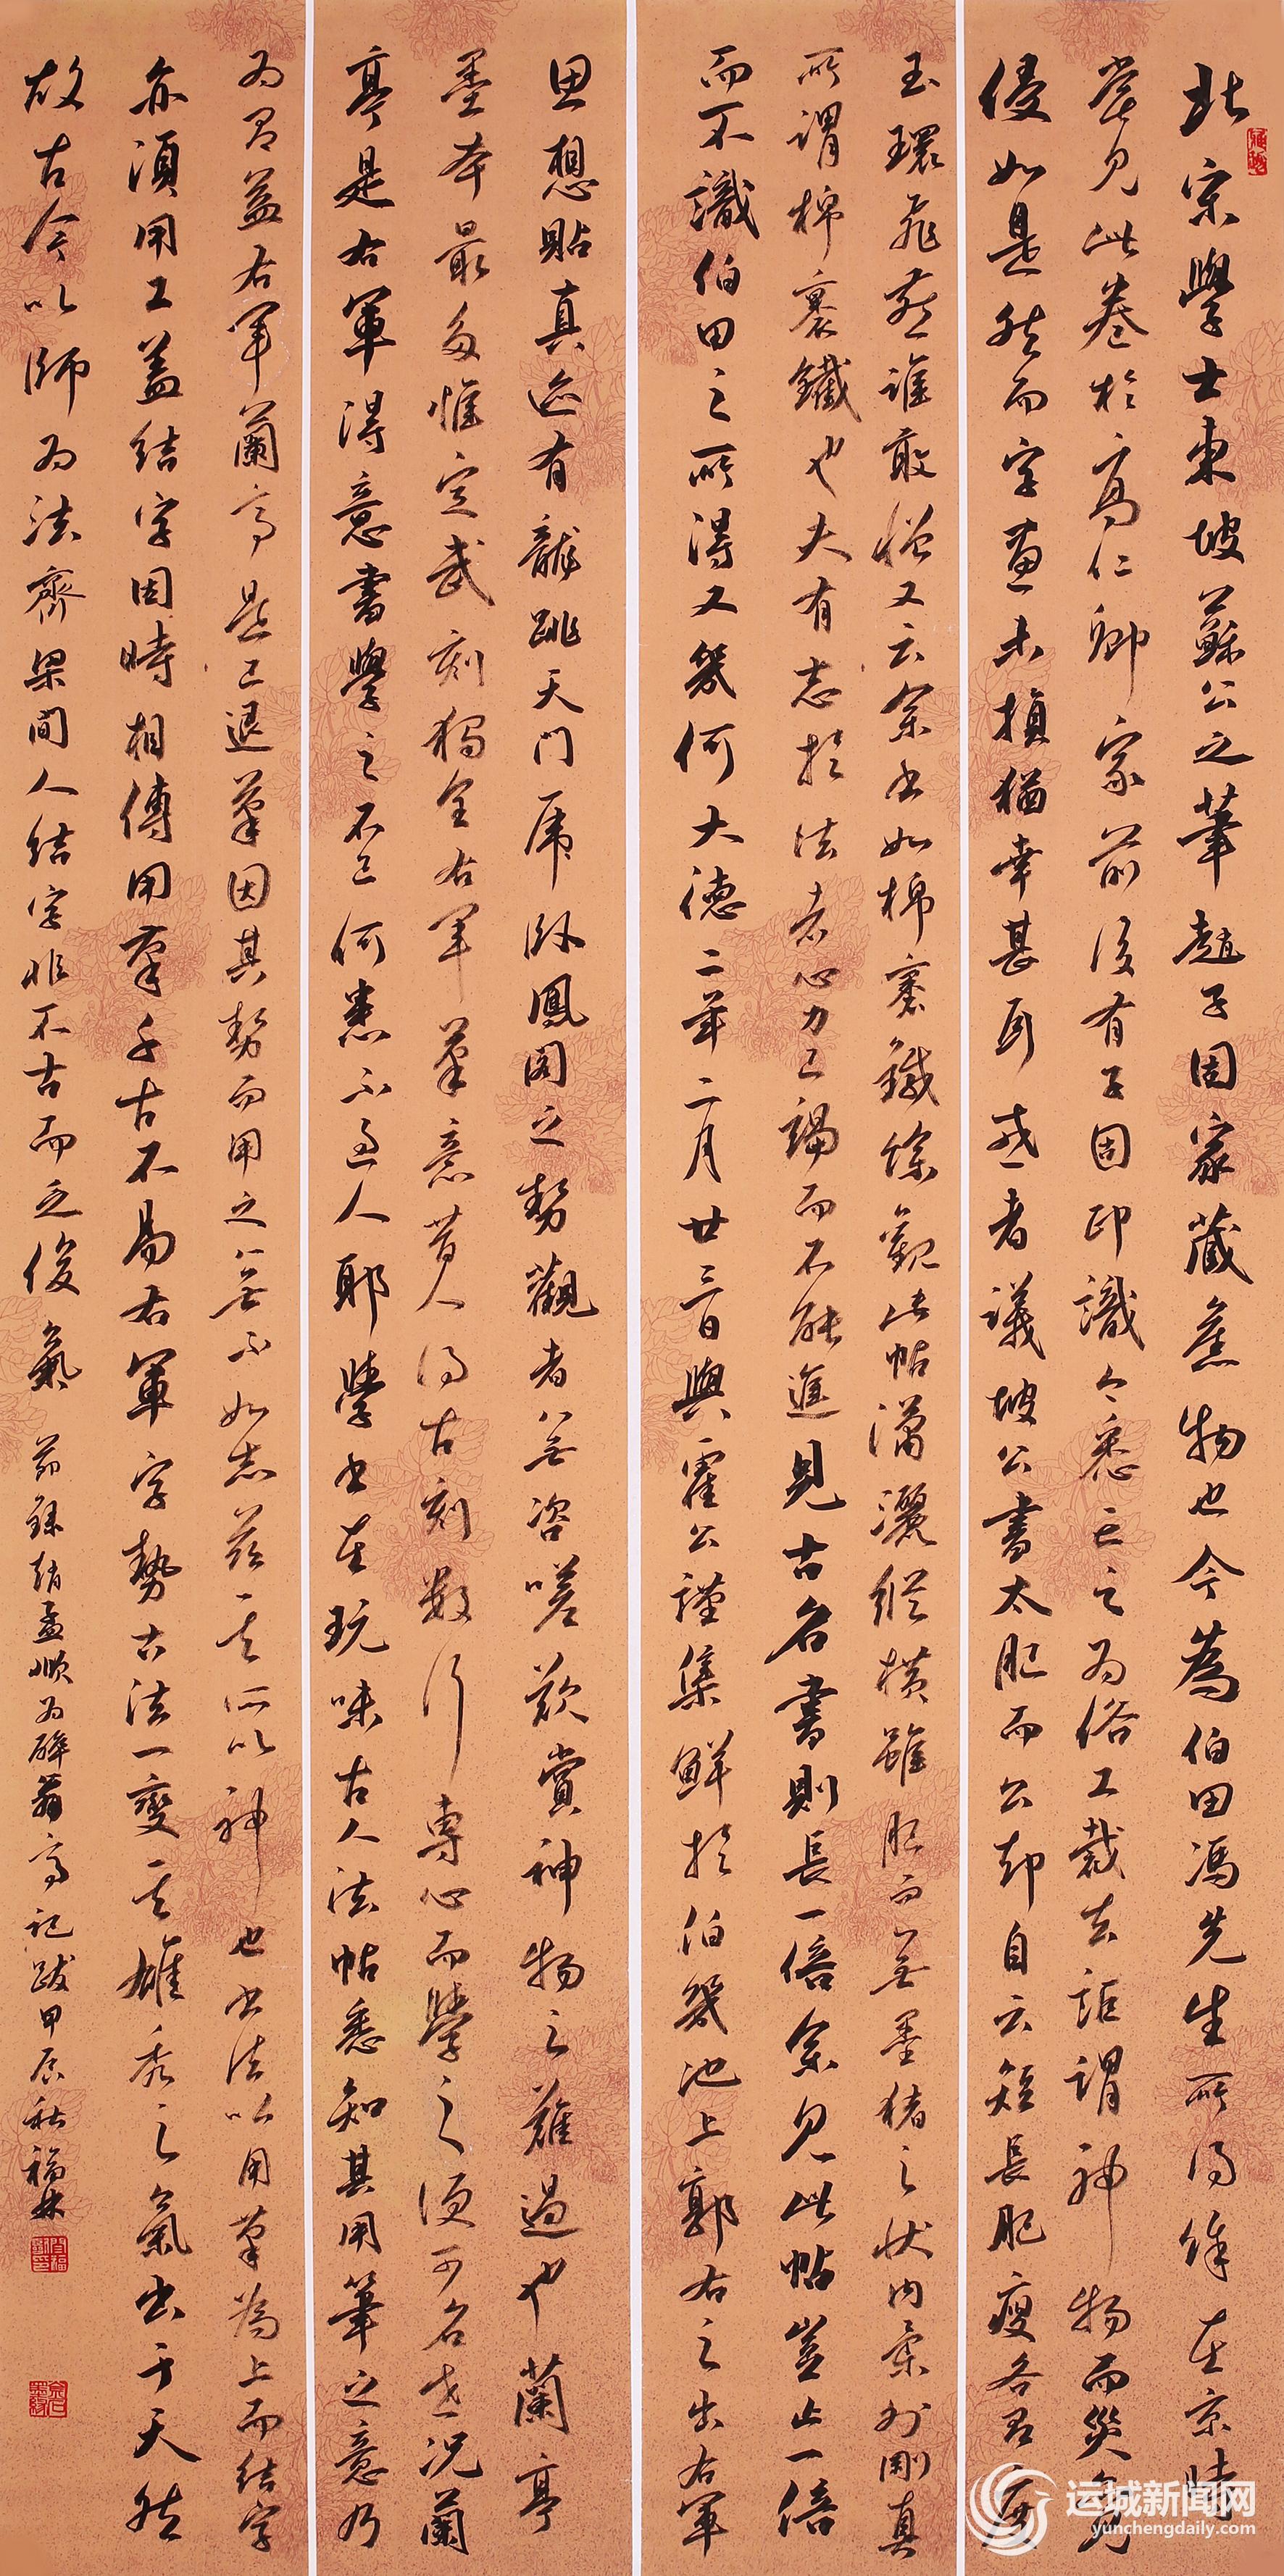 北宋學士東坡蘇公之筆趙子固家藏舊物也今為伯田馮先生所得余在京時
嘗見此卷於高仁卿家前後有子固印識今悉亡之为俗工裁去詎謂神物而災多
侵如是然而字畫未損猶幸甚耳或者議坡公書太肥而公却自云短長肥瘦各有度
玉環飛燕誰敢憎又云余书如棉裹鐵余觀此帖瀟灑縱橫雖肥而無墨猪之狀内柔外剛真
所謂棉裹鐵也夫有志於法者心力已竭而不能進見古名書則長一倍余见此帖豈止一倍
而不識伯田之所得又幾何大德二年二月廿三日與霍公謹集鮮於伯幾池上郭右之出右軍
思想貼真迹有龍跳天门虎卧鳳閣之勢觀者無咨嗟歎賞神物之難過也蘭亭
墨本最多惟定武刻獨全右军筆意昔人得古刻数行專心而學之便可名世况蘭
亭是右軍得意書學之不已何患不过人耶學书在玩味古人法帖悉知其用筆之意乃
为有益右军蘭亭是已退筆因其勢而用之無不如志兹其所以神也书法以用筆為上而结字
亦須用工蓋结字因時相傳用筆千古不易右軍字勢古法一變其雄秀之氣出于天然
故古今以师为法齊梁间人结字非不古而乏俊氣 節録趙孟頫为醉翁亭記跋甲辰秋福林
运城新闻网
yunchengdaily.com